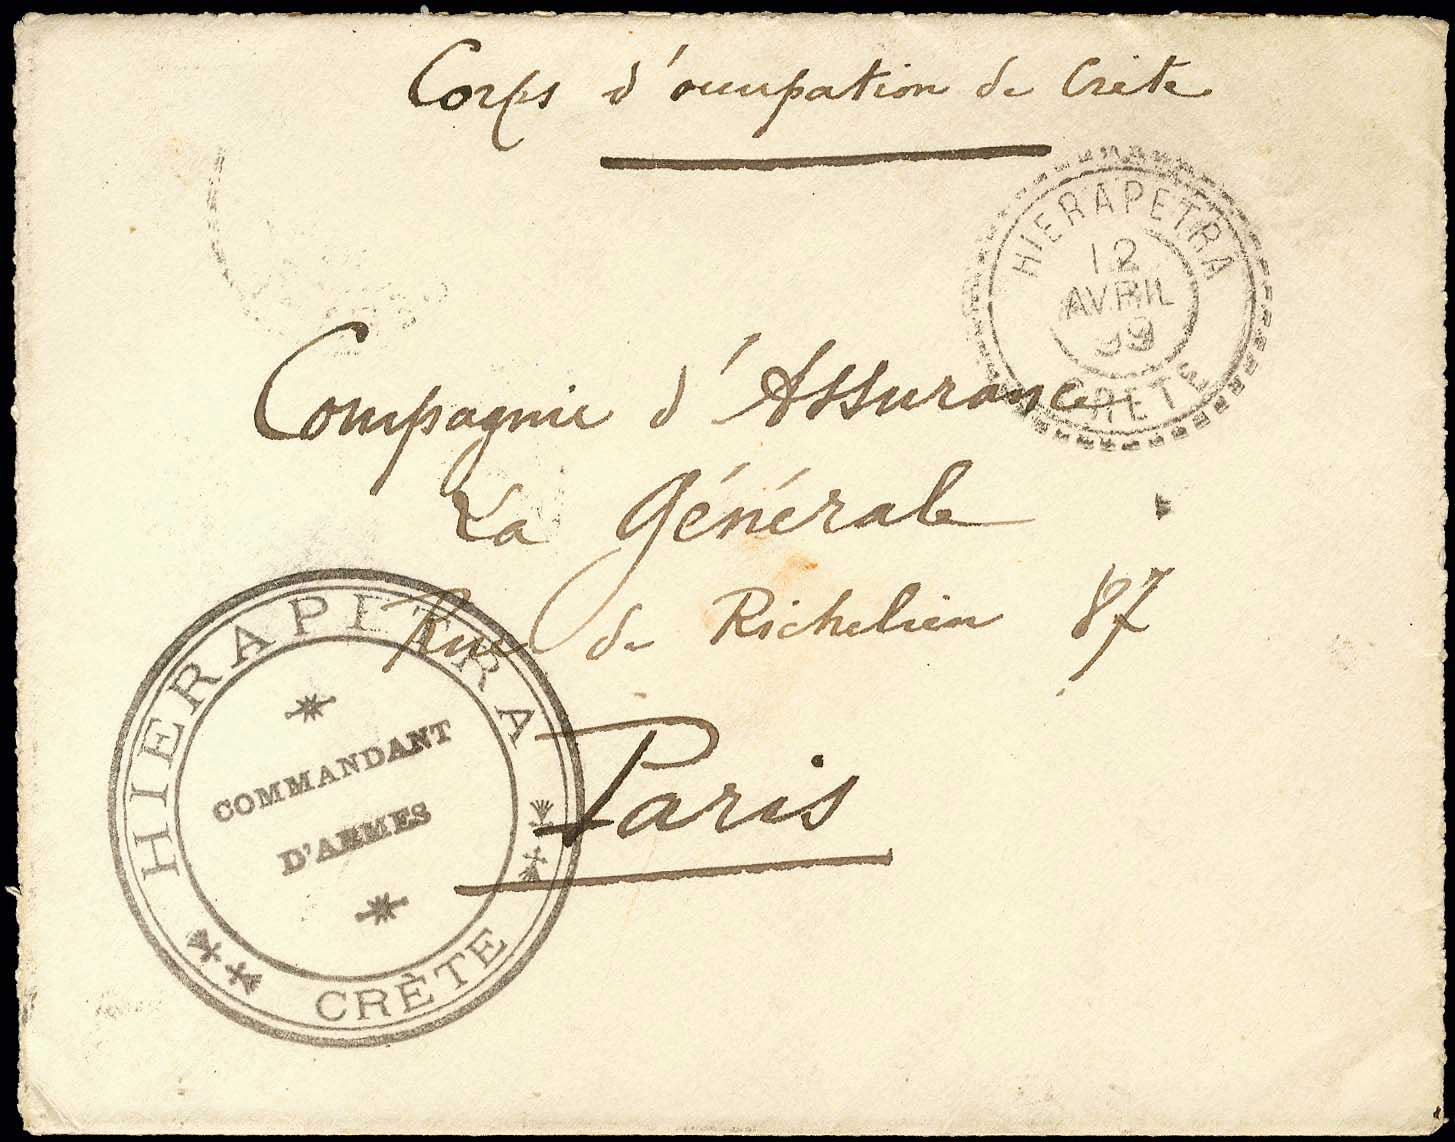 Corps d'occupation de Crète
HIERAPETRA
12
AVRIL
99
CRETE
Compagnie d'Assurance
La Générale
Rue de Richelieu 87
Paris
HIERAPETRA
COMMANDANT
D'ARMES
CRÈTE